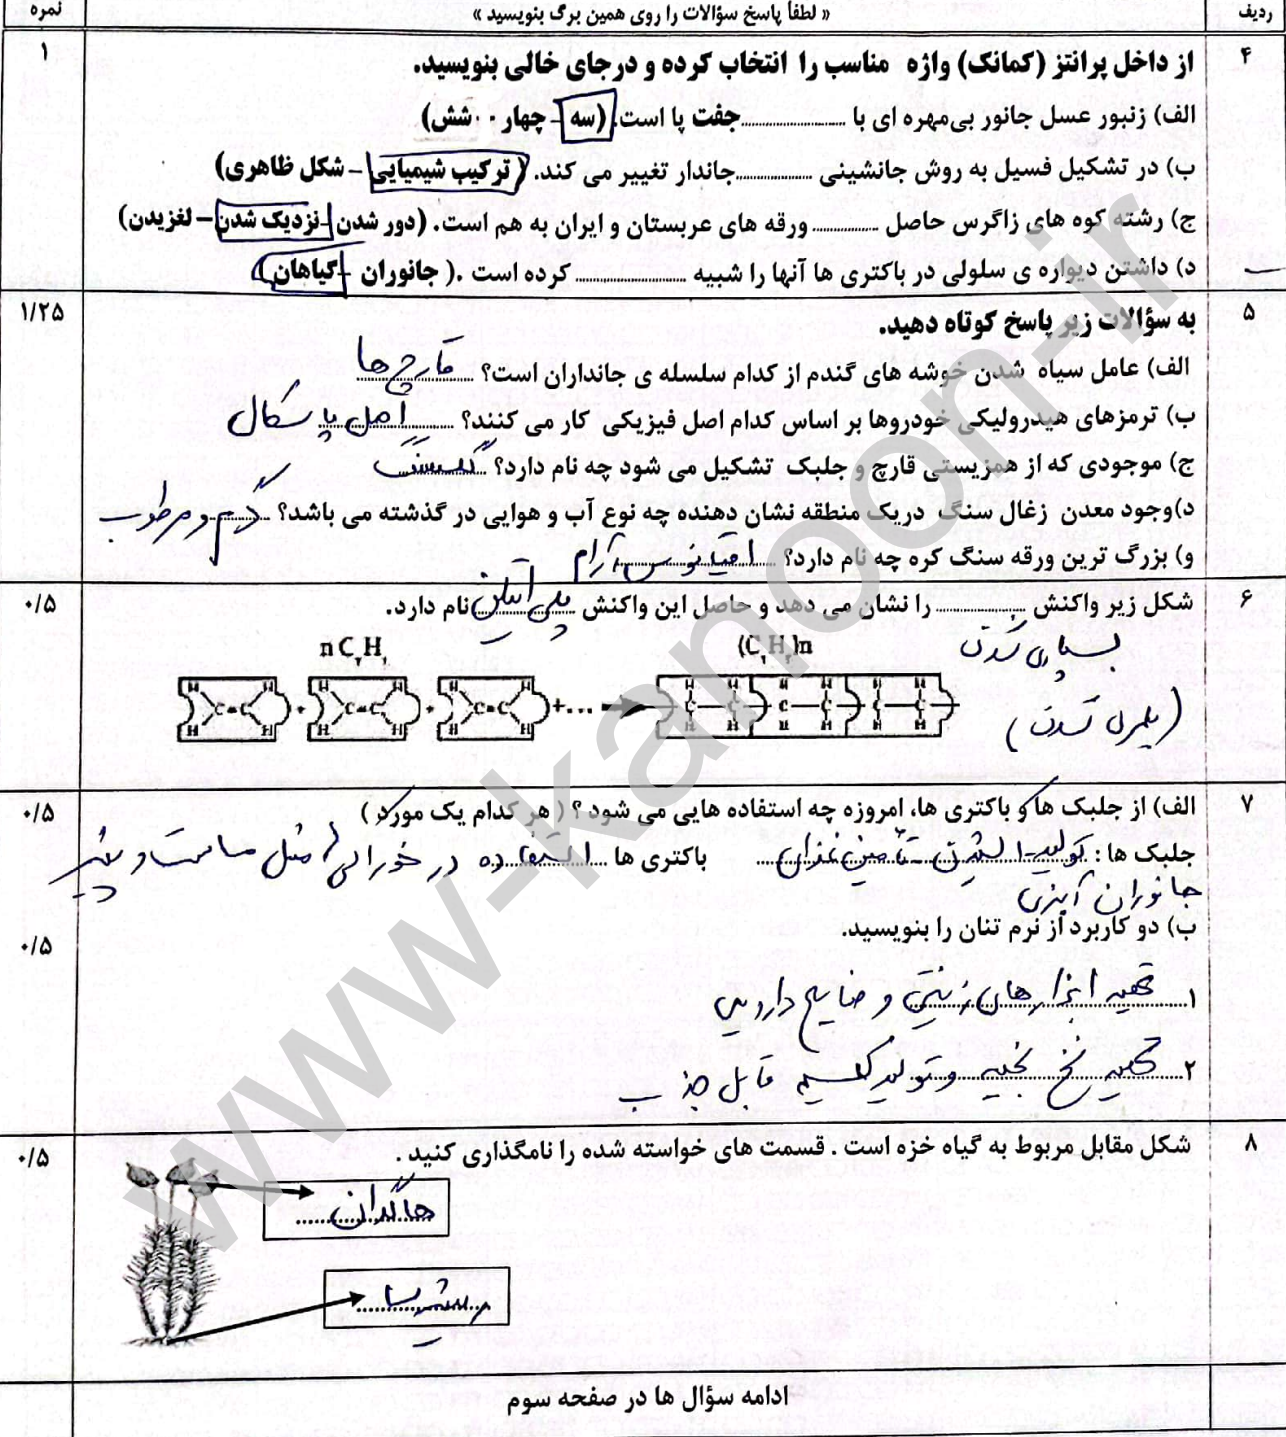 ردیف « لطفاً پاسخ سؤالات را روی همین برگ بنویسید » نمره
۴ از داخل پرانتز (کمانک) واژه مناسب را انتخاب کرده و درجای خالی بنویسید. ۱
الف) زنبور عسل جانور بی‌مهره ای با ........... جفت پا است. (سه - چهار - شش)
ب) در تشکیل فسیل به روش جانشینی ........... جاندار تغییر می کند. (ترکیب شیمیایی - شکل ظاهری)
ج) رشته کوه های زاگرس حاصل ........... ورقه های عربستان و ایران به هم است. (دور شدن - نزدیک شدن - لغزیدن)
د) داشتن دیواره ی سلولی در باکتری ها آنها را شبیه ........... کرده است .( جانوران - گیاهان )
۵ به سؤالات زیر پاسخ کوتاه دهید. ۱/۲۵
الف) عامل سیاه شدن خوشه های گندم از کدام سلسله ی جانداران است؟ قارچ ها
ب) ترمزهای هیدرولیکی خودروها بر اساس کدام اصل فیزیکی کار می کنند؟ اصل پاسکال
ج) موجودی که از همزیستی قارچ و جلبک تشکیل می شود چه نام دارد؟ گلسنگ
د)وجود معدن زغال سنگ دریک منطقه نشان دهنده چه نوع آب و هوایی در گذشته می باشد؟ گرم و مرطوب
و) بزرگ ترین ورقه سنگ کره چه نام دارد؟ اقیانوس آرام
۶ شکل زیر واکنش ........... را نشان می دهد و حاصل این واکنش پلی اتیلن نام دارد. ۰/۵
بسپاری شدن
(پلمری شدن)
n C₂H₄ (C₂H₄)n
H H C=C H H + H H C=C H H + H H C=C H H +... H H C C H H H H C C H H H H C C H H
۷ الف) از جلبک ها و باکتری ها، امروزه چه استفاده هایی می شود ؟ ( هر کدام یک مورد ) ۰/۵
جلبک ها : تولید اکسیژن - تأمین غذای باکتری ها استفاده در خوراکی مثل ماست و پنیر
جانوران آبزی
ب) دو کاربرد از نرم تنان را بنویسید. ۰/۵
۱ تهیه ابزارهای زینتی و صنایع دارویی
۲ تهیه نخ بخیه و تولید کلسیم قابل جذب
۸ شکل مقابل مربوط به گیاه خزه است . قسمت های خواسته شده را نامگذاری کنید . ۰/۵
هاگدان
ریشه سا
ادامه سؤال ها در صفحه سوم
www-kanoon-ir